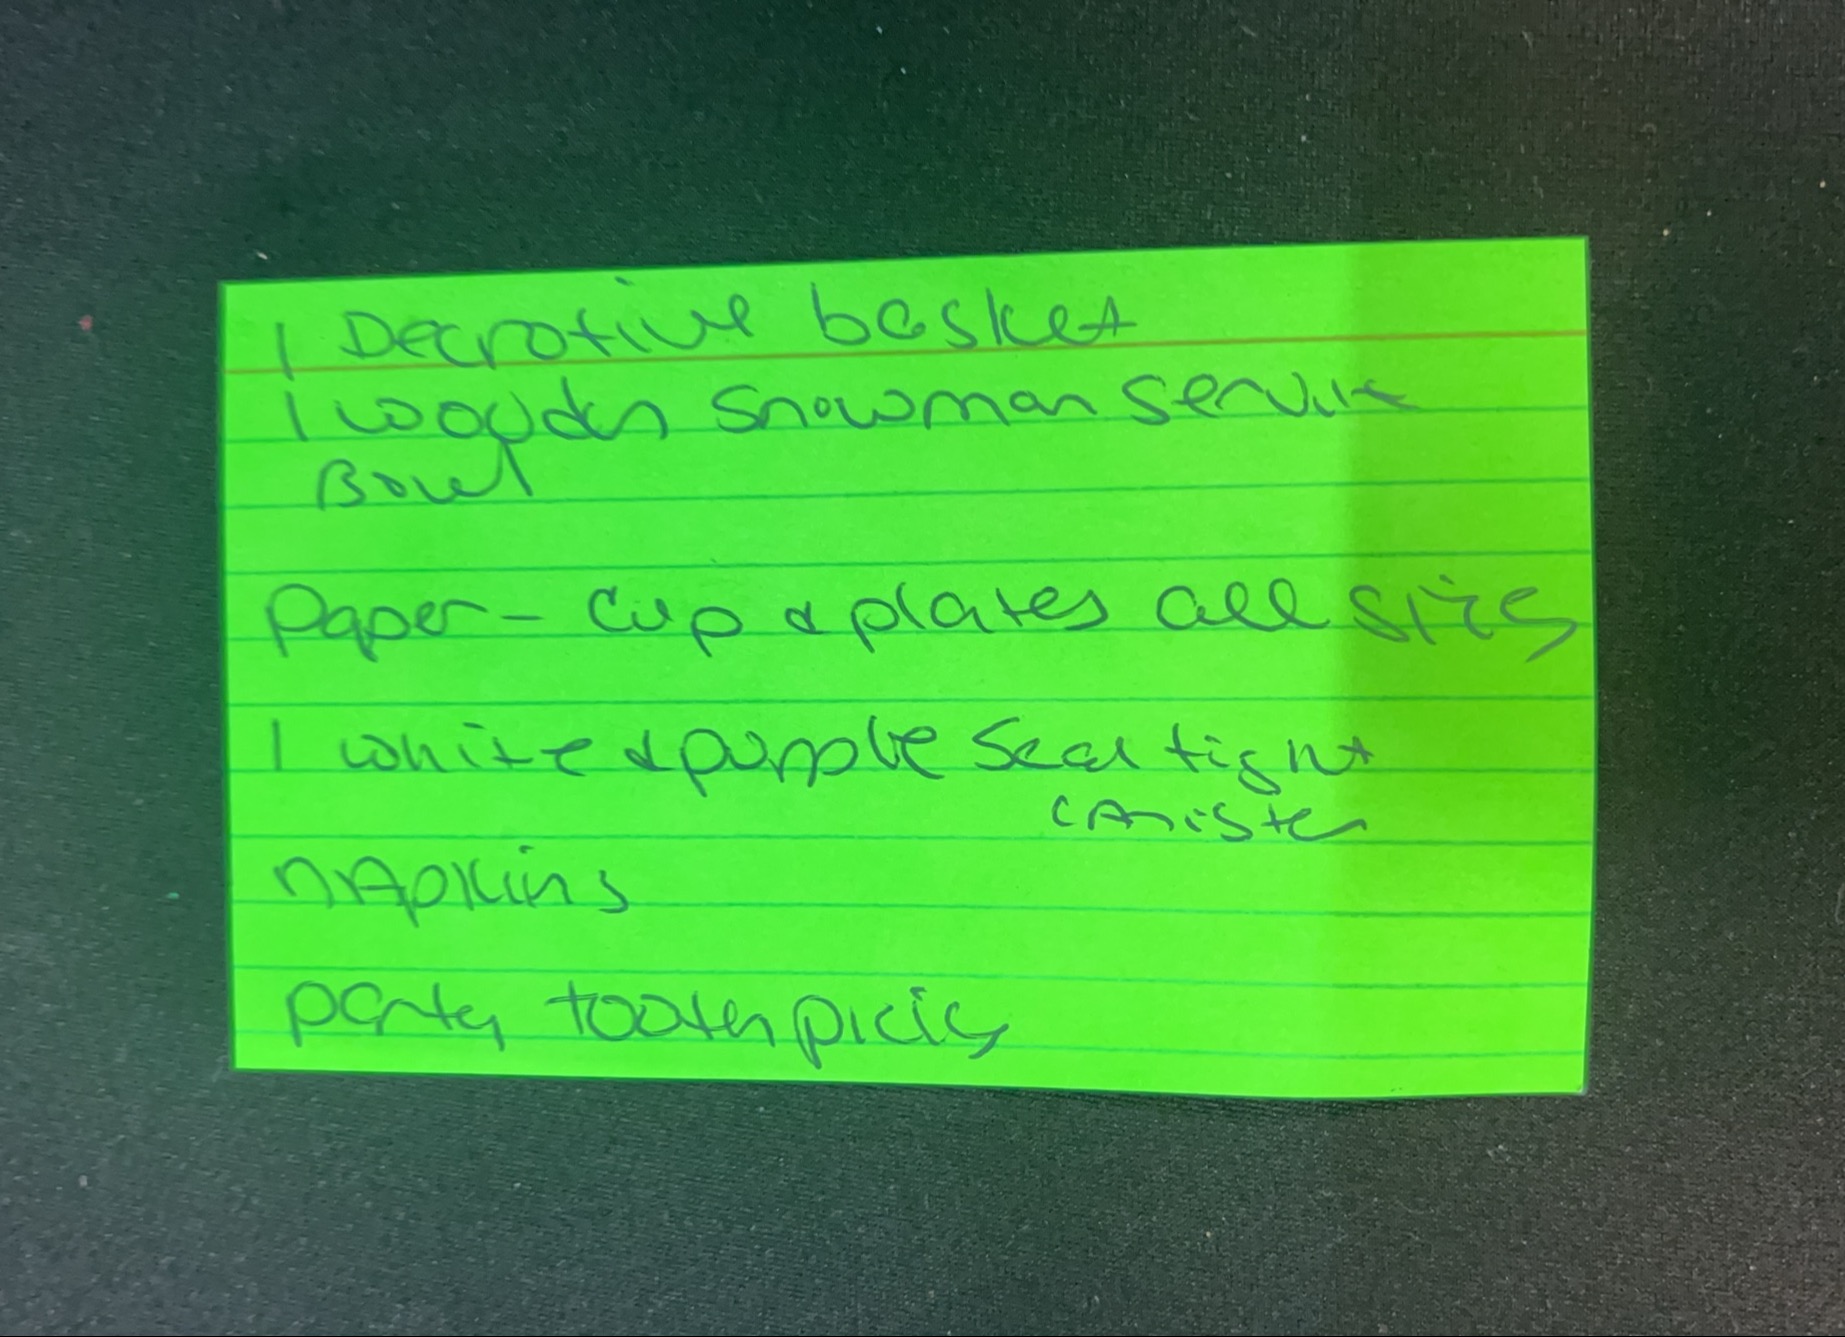 1 Decrotive basket
1 wooden snowman service
Bowl
Paper - Cup & plates all sizes
1 white & purple seal tight
canister
NAPKins
party toothpicks